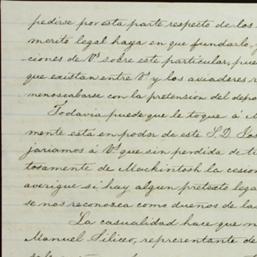 pedirse por esta parte respecto de los
merito legal haya en que fundarlo,
ciones de Vs. sobre este particular, pues
que existan entre Vs. y los aviadores
menoscabarse con la pretension del depo
Todavia puede que le toque á M
mente está en poder de este S. D. Jos
jariamos á Vs. que sin perdida de ti
tosamente de Mackintosh la cesion
averigue si hay algun pretesto legal
se nos reconosca como dueños de la
La casualidad hace que
Manuel Silicio, representante de